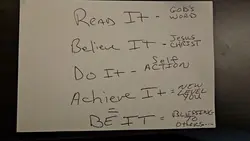 READ IT - GOD'S WORD
Believe IT - JESUS CHRIST
Do It - SELF ACTION
Achieve It = NEW LEVEL YOU
=
BE IT = TO OTHERS...